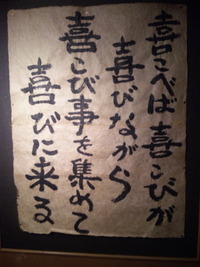 喜こべば喜こびが
喜びながら
喜こび事を集めて
喜びに来る